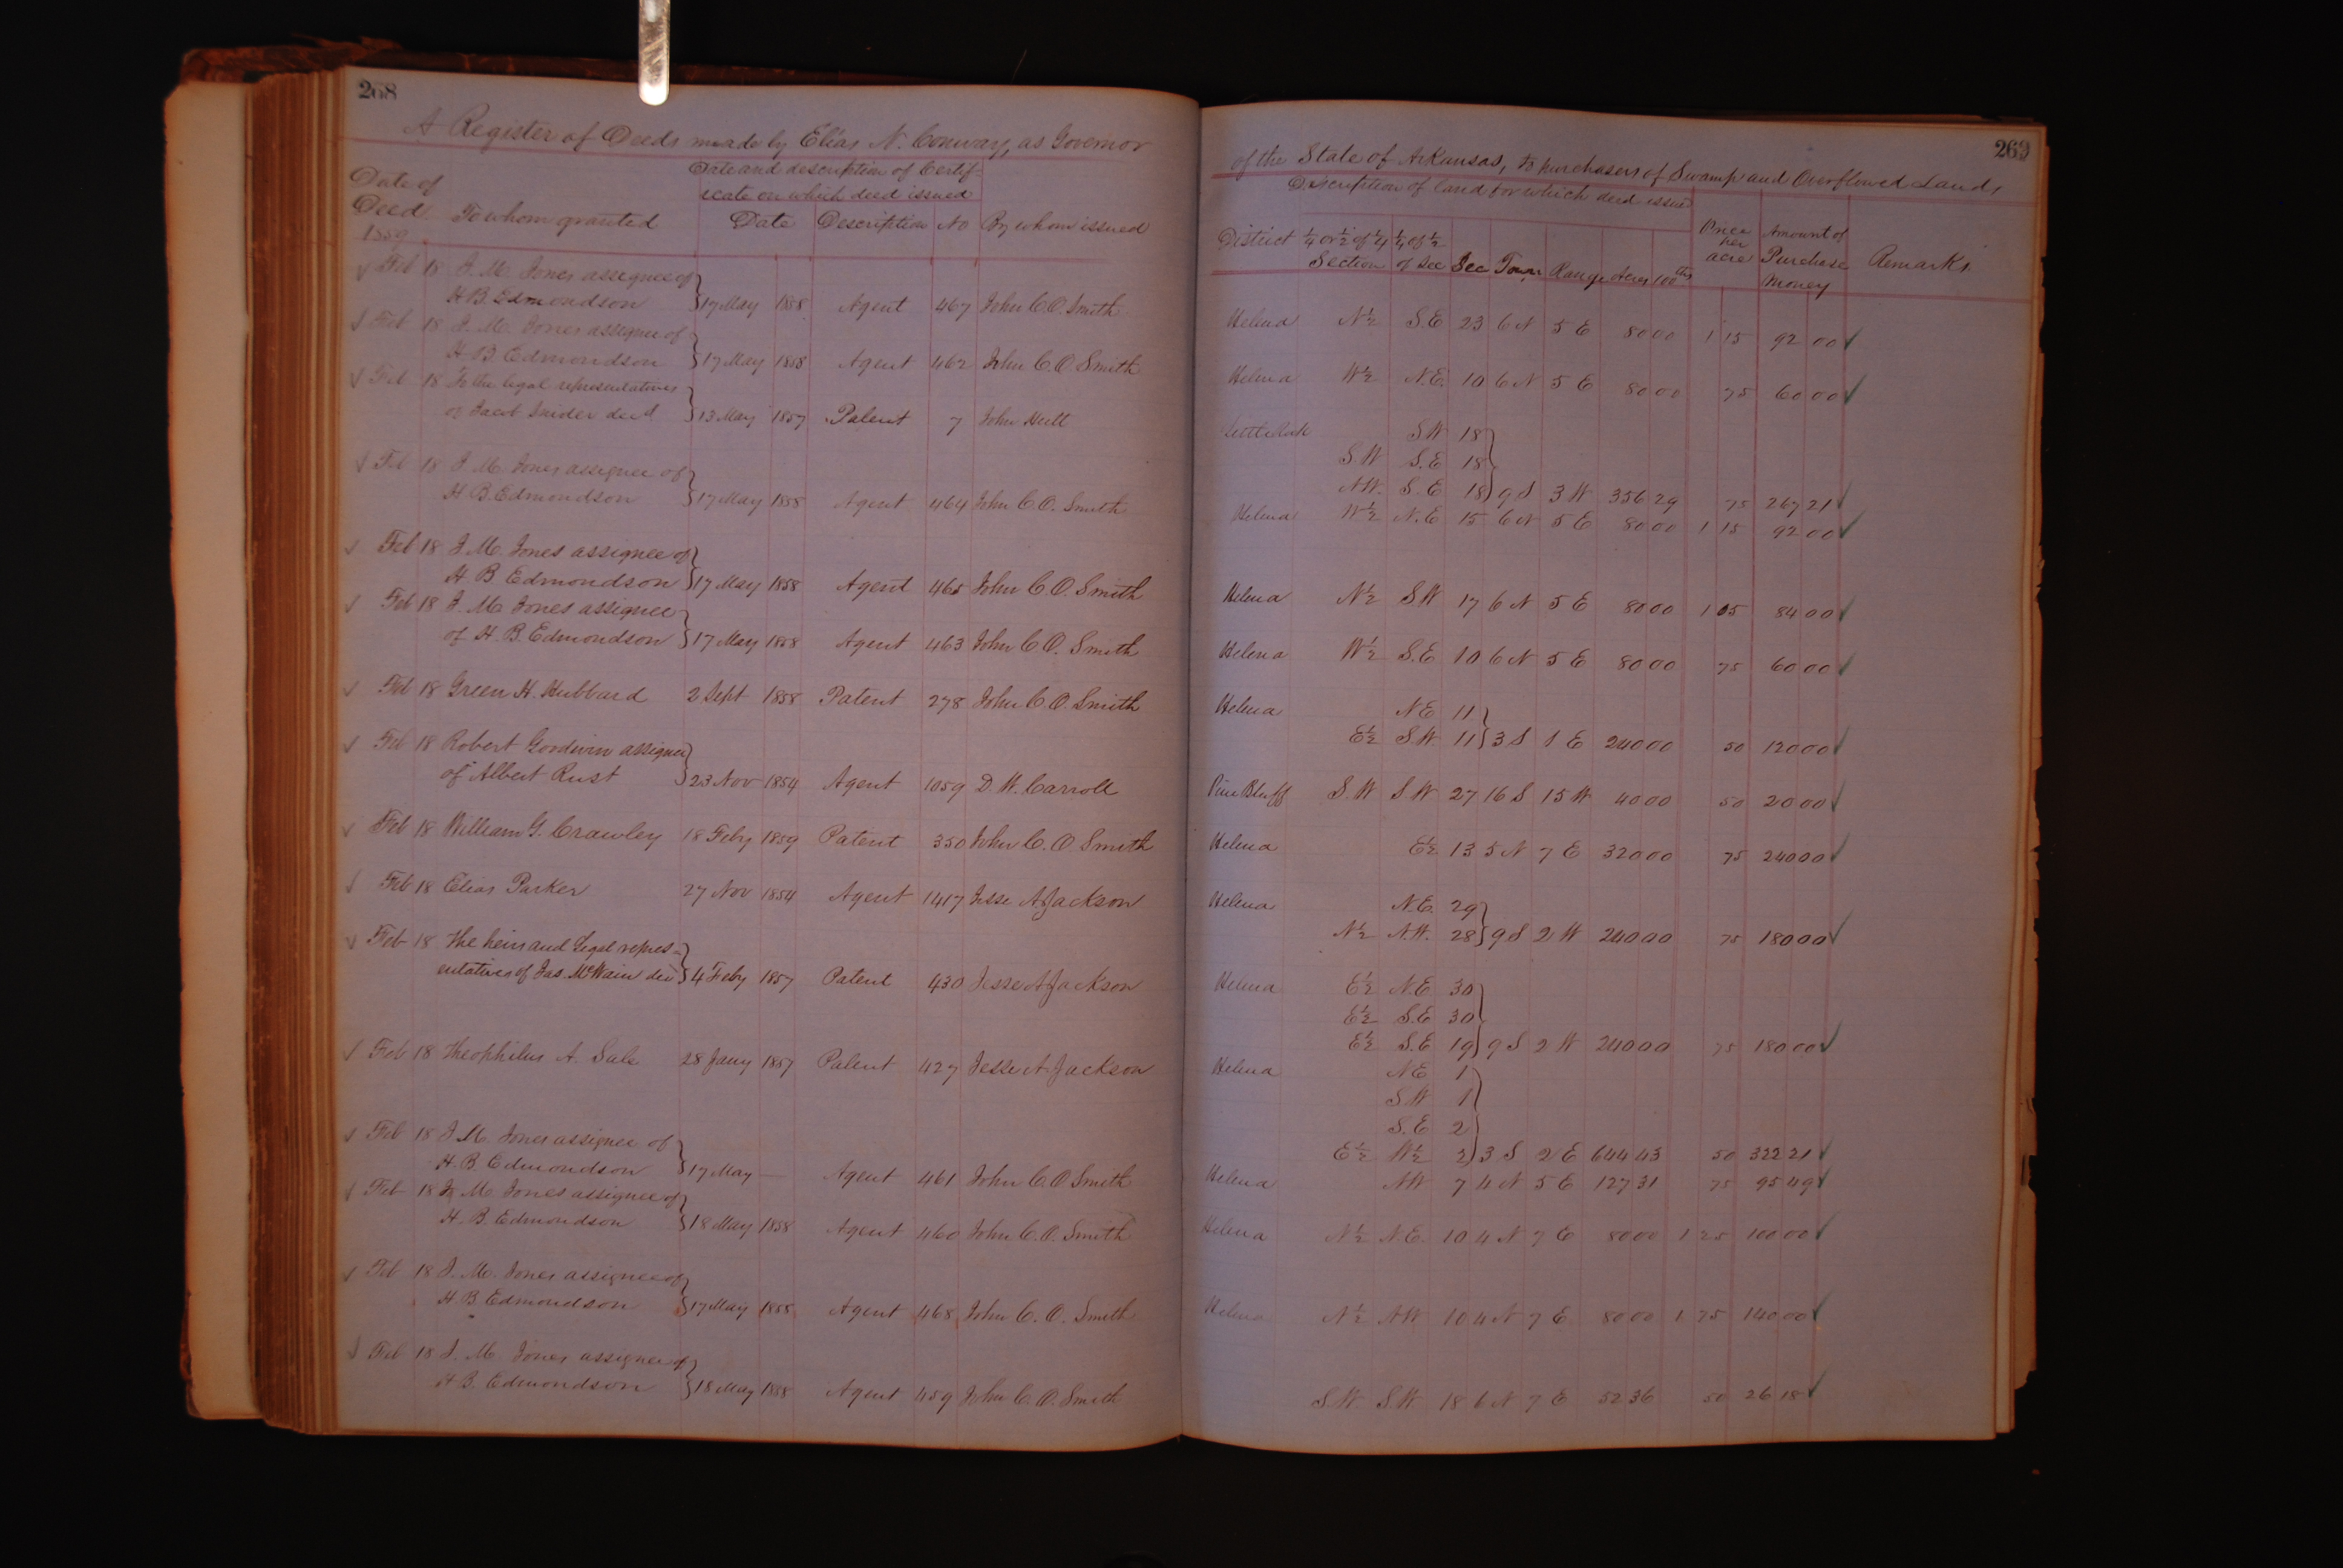 268
A Register of Deeds made by Elias N. Conway, as Governor
Date of Deed 1859 To whom granted Date and description of Certificate on which deed issued Date Description No By whom issued
Feb 18 J. M. Jones assignee of
H B. Edmondson 17 May 1858 Agent 467 John C. O. Smith
Feb 18 J. M. Jones assignee of
H B Edmondson 17 May 1858 Agent 462 John C. O. Smith
Feb 18 To the legal representatives
of Jacob Snider decd 13 May 1857 Patent 7 John Hutt
Feb 18 J M. Jones assignee of
H B. Edmondson 17 May 1858 Agent 464 John C. O. Smith
Feb 18 J. M. Jones assignee of
H B Edmondson 17 May 1858 Agent 465 John C O. Smith
Feb 18 J. M. Jones assignee
of H. B. Edmondson 17 May 1858 Agent 463 John C O. Smith
Feb 18 Green H. Hubbard 2 Sept 1858 Patent 278 John C. O. Smith
Feb 18 Robert Goodwin assignee
of Albert Rust 23 Nov 1854 Agent 1059 D. W. Carroll
Feb 18 William G. Crawley 18 Feby 1859 Patent 350 John C. O Smith
Feb 18 Elias Parker 27 Nov 1854 Agent 1417 Jesse A Jackson
Feb 18 The heirs and Legal repres-
entatives of Jas. McWain decd 4 Feby 1857 Patent 430 Jesse A Jackson
Feb 18 Theophilus A. Sale 28 Jany 1857 Patent 427 Jesse A. Jackson
Feb 18 J. M. Jones assignee of
H. B. Edmondson 17 May — Agent 461 John C O Smith
Feb 18 J. M. Jones assignee of
H. B. Edmondson 18 May 1858 Agent 460 John C. O. Smith
Feb 18 J. M. Jones assignee of
H. B. Edmondson 17 May 1858 Agent 468 John C. O. Smith
Feb 18 J. M. Jones assignee of
H B. Edmondson 18 May 1858 Agent 459 John C. O. Smith
269
of the State of Arkansas, to purchasers of Swamp and Overflowed Lands
Description of land for which deed issued
District ¼ or ½ of ¼ Section ¼ of ½ of Sec Sec Town Range Acres 100ths Price per acre Amount of Purchase Money Remarks
Helena N½ S.E 23 6 N 5 E 80 00 1 15 92 00
Helena W½ N.E. 10 6 N 5 E 80 00 75 60 00
Little Rock S W 18
S. W S. E 18
N.W. S. E 18 9 S 3 W 356 29 75 267 21
Helena W½ N. E 15 6 N 5 E 80 00 1 15 92 00
Helena N½ S W 17 6 N 5 E 80 00 1 05 84 00
Helena W½ S. E 10 6 N 5 E 80 00 75 60 00
Helena N E 11
E½ S W. 11 3 S 1 E 240 00 50 120 00
Pine Bluff S. W S W 27 16 S 15 W 40 00 50 20 00
Helena E½ 13 5 N 7 E 320 00 75 240 00
Helena N. E. 29
N½ N.W. 28 9 S 2 W 240 00 75 180 00
Helena E½ N.E 30
E½ S.E 30
E½ S.E 19 9 S 2 W 240 00 75 180 00
Helena N E 1
S W 1
S. E 2
E½ W½ 2 3 S 2 E 644 43 50 322 21
Helena N W 7 4 N 5 E 127 31 75 95 49
Helena N½ N E. 10 4 N 7 E 80 00 1 25 100 00
Helena N½ N W 10 4 N 7 E 80 00 1 75 140 00
S. W. S. W 18 6 N 7 E 52 36 50 26 18